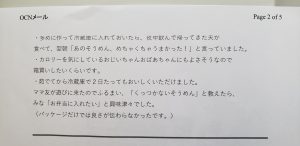 OCNメール
Page 2 of 5
・多めに作って冷蔵庫に入れておいたら、夜中飲んで帰ってきた夫が
食べて、翌朝「あのそうめん、めちゃくちゃうまかった！」と言っていました。
・カロリーを気にしているおじいちゃんおばあちゃんにもよさそうなので
箱買いしたいくらいです。
・茹でてから冷蔵庫で２日たってもおいしくいただけました。
ママ友が遊びに来たのでふるまい、「くっつかないそうめん」と教えたら、
みな「お弁当に入れたい」と興味津々でした。
（パッケージだけでは良さが伝わらなかったです。）